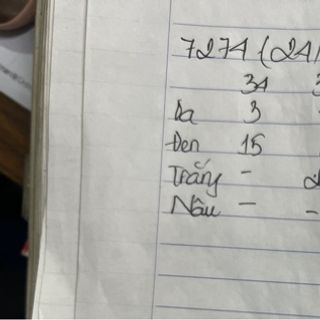 7274 (241
34 3
Da 3
Đen 15
Trắng - 2
Nâu - -